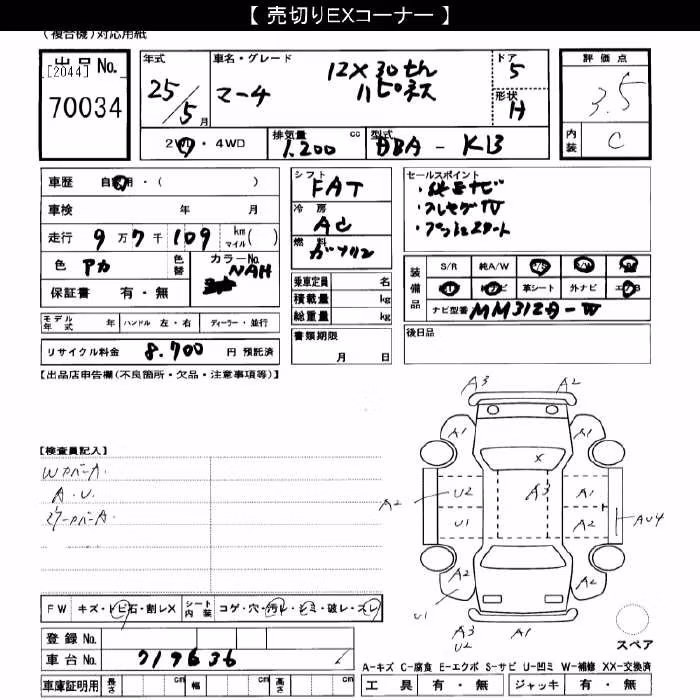 【 売切りEXコーナー 】
(複合機)対応用紙
出品 No.
[2044]
70034
年式
25/5月
車名・グレード
マーチ
12X 30th
ハピネス
ドア
5
形状
H
評価点
3.5
内装
C
2WD・4WD
排気量
1.200 cc
型式
DBA - K13
車歴 自家用・( )
車検 年 月
走行 9万7千109 km マイル( )
色 アカ
色替
カラーNo.
NAH
保証書 有・無
シフト
FAT
冷房
AC
燃料
ガソリン
乗車定員 名
積載量 kg
総重量 kg
セールスポイント
・純正ナビ
・フルセグTV
・プッシュスタート
装備品
S/R 純A/W P/S P/W
純ナビ 革シート 外ナビ エアB
ナビ型番 MM312D-W
モデル年式 年 ハンドル 左・右 ディーラー・並行
リサイクル料金 8.700 円 預託済
書類期限
月 日
後日品
【出品店申告欄(不良箇所・欠品・注意事項等)】
【検査員記入】
WカバーA.
A.U.
ミラーカバーA.
A3 A2
A1 A1
X
A2 U2 A3 A1
U1 A2 AU4
A2 A2
U1
A3 A1
U2
スペア
FW キズ・トビ石・割レX シート内装 コゲ・穴・汚レ・シミ・破レ・スレ
登録 No.
車台 No. 719636
車庫証明用 長さ cm 幅 cm 高さ cm
A-キズ C-腐食 E-エクボ S-サビ U-凹ミ W-補修 XX-交換済
工具 有・無 ジャッキ 有・無